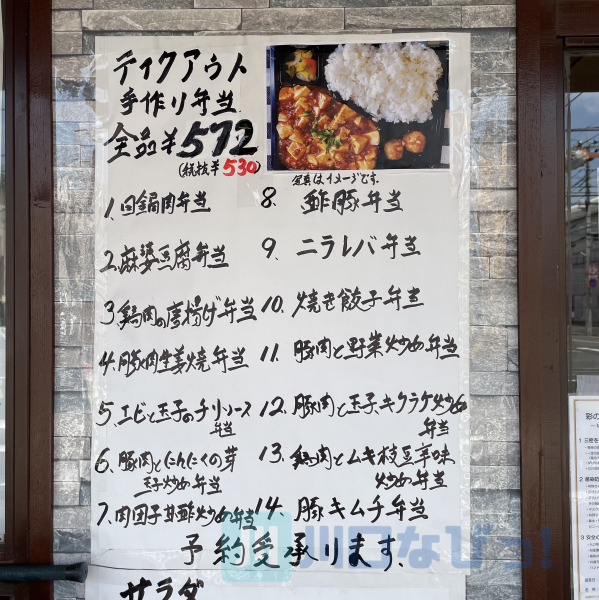 テイクアウト
手作り弁当
全品¥572
(税抜¥530)
写真はイメージです。
1.回鍋肉弁当
2.麻婆豆腐弁当
3.鶏肉の唐揚げ弁当
4.豚肉生姜焼弁当
5.エビと玉子のチリソース
弁当
6.豚肉とにんにくの芽
玉子炒め弁当
7.肉団子甘酢炒め弁当
8.酢豚弁当
9.ニラレバ弁当
10.焼き餃子弁当
11.豚肉と野菜炒め弁当
12.豚肉と玉子、キクラゲ炒め
弁当
13.鶏肉とムキ枝豆辛味
炒め弁当
14.豚キムチ弁当
予約受承ります、
サラダ
川口なびっ!
彩の